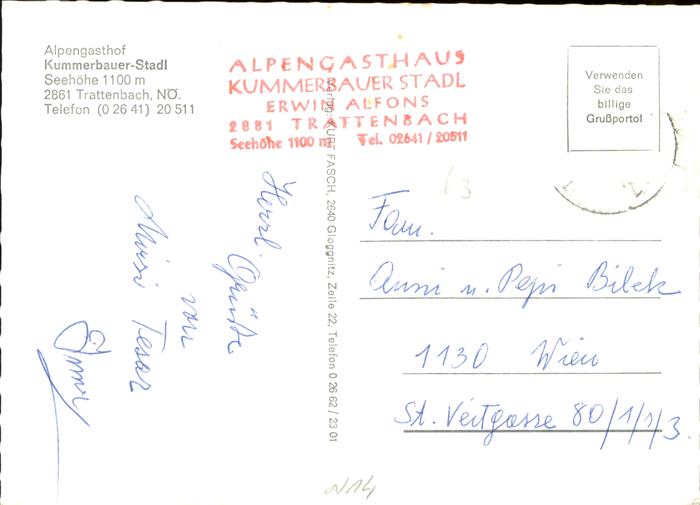 Alpengasthof
Kummerbauer-Stadl
Seehöhe 1100 m
2861 Trattenbach, NÖ.
Telefon (0 26 41) 20 511
ALPENGASTHAUS
KUMMERBAUER STADL
ERWIN ALFONS
2881 TRATTENBACH
Seehöhe 1100 m Tel. 02641 / 20511
Verwenden
Sie das
billige
Grußporto!
Verlag: KURT FASCH, 2640 Gloggnitz, Zeile 22, Telefon 0 26 62 / 23 01
Herzl. Grüße
von
Mirzi Tesar
Fam.
Anni u. Pepi Bilek
1130 Wien
St. Veitgasse 80/1/1/3.
63
N14